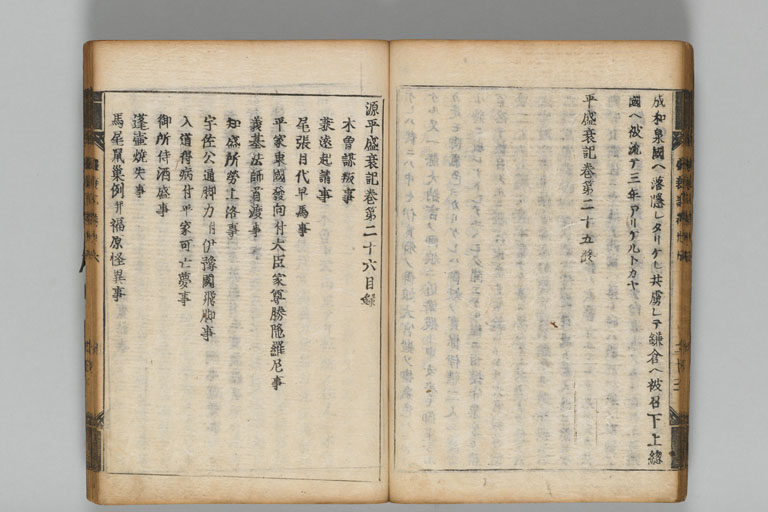 成和泉國ヘ落隱レタリケレ共虜レテ鎌倉ヘ被召下上總
國ヘ被流テ三年アリケルトカヤ
平盛衰記巻第二十五終
源平盛衰記巻第二十六目録
木曽謀叛事
兼遠起請事
尾張目代早馬事
平家東國發向付大臣家尊勝陀羅尼事
義基法師首渡事
知盛所勞上洛事
宇佐公通脚力付伊豫國飛脚事
入道得病付平家可亡夢事
御所侍酒盛事
蓬壷燒失事
馬尾鼠巣例并福原怪異事